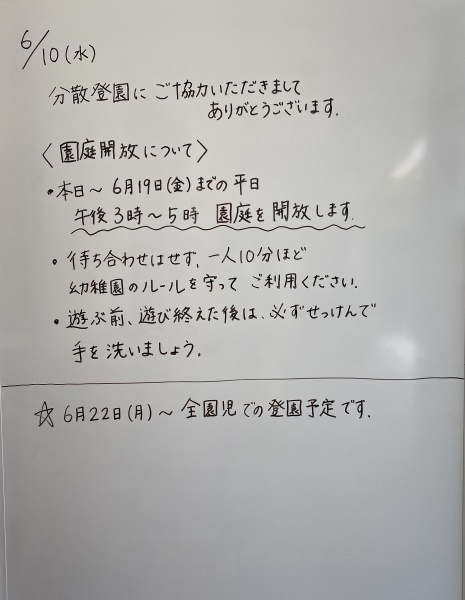 6/10(水)
分散登園に ご協力いただきまして
ありがとうございます.
〈園庭開放について〉
・本日～6月19日(金)までの平日
午後3時～5時 園庭を開放します.
・待ち合わせはせず、一人10分ほど
幼稚園のルールを守って ご利用ください.
・遊ぶ前、遊び終えた後は、必ずせっけんで
手を洗いましょう.
☆6月22日(月)～全園児での登園予定です.